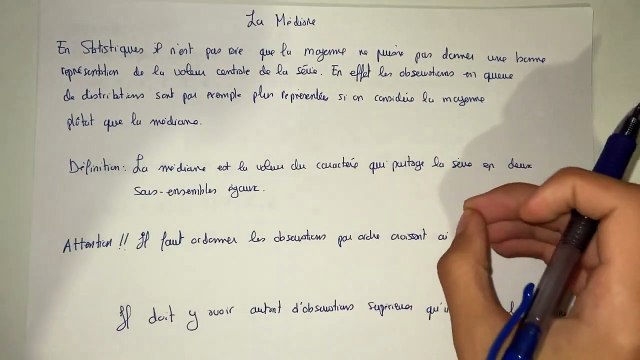 La Médiane
En Statistiques il n'est pas rare que la moyenne ne puisse pas donner une bonne
représentation de la valeur centrale de la série. En effet les observations en queue
de distributions sont par exemple plus représentées si on considère la moyenne
plutôt que la médiane.
Définition : La médiane est la valeur du caractère qui partage la série en deux
sous-ensembles égaux.
Attention !! Il faut ordonner les observations par ordre croissant
Il doit y avoir autant d'observations supérieures